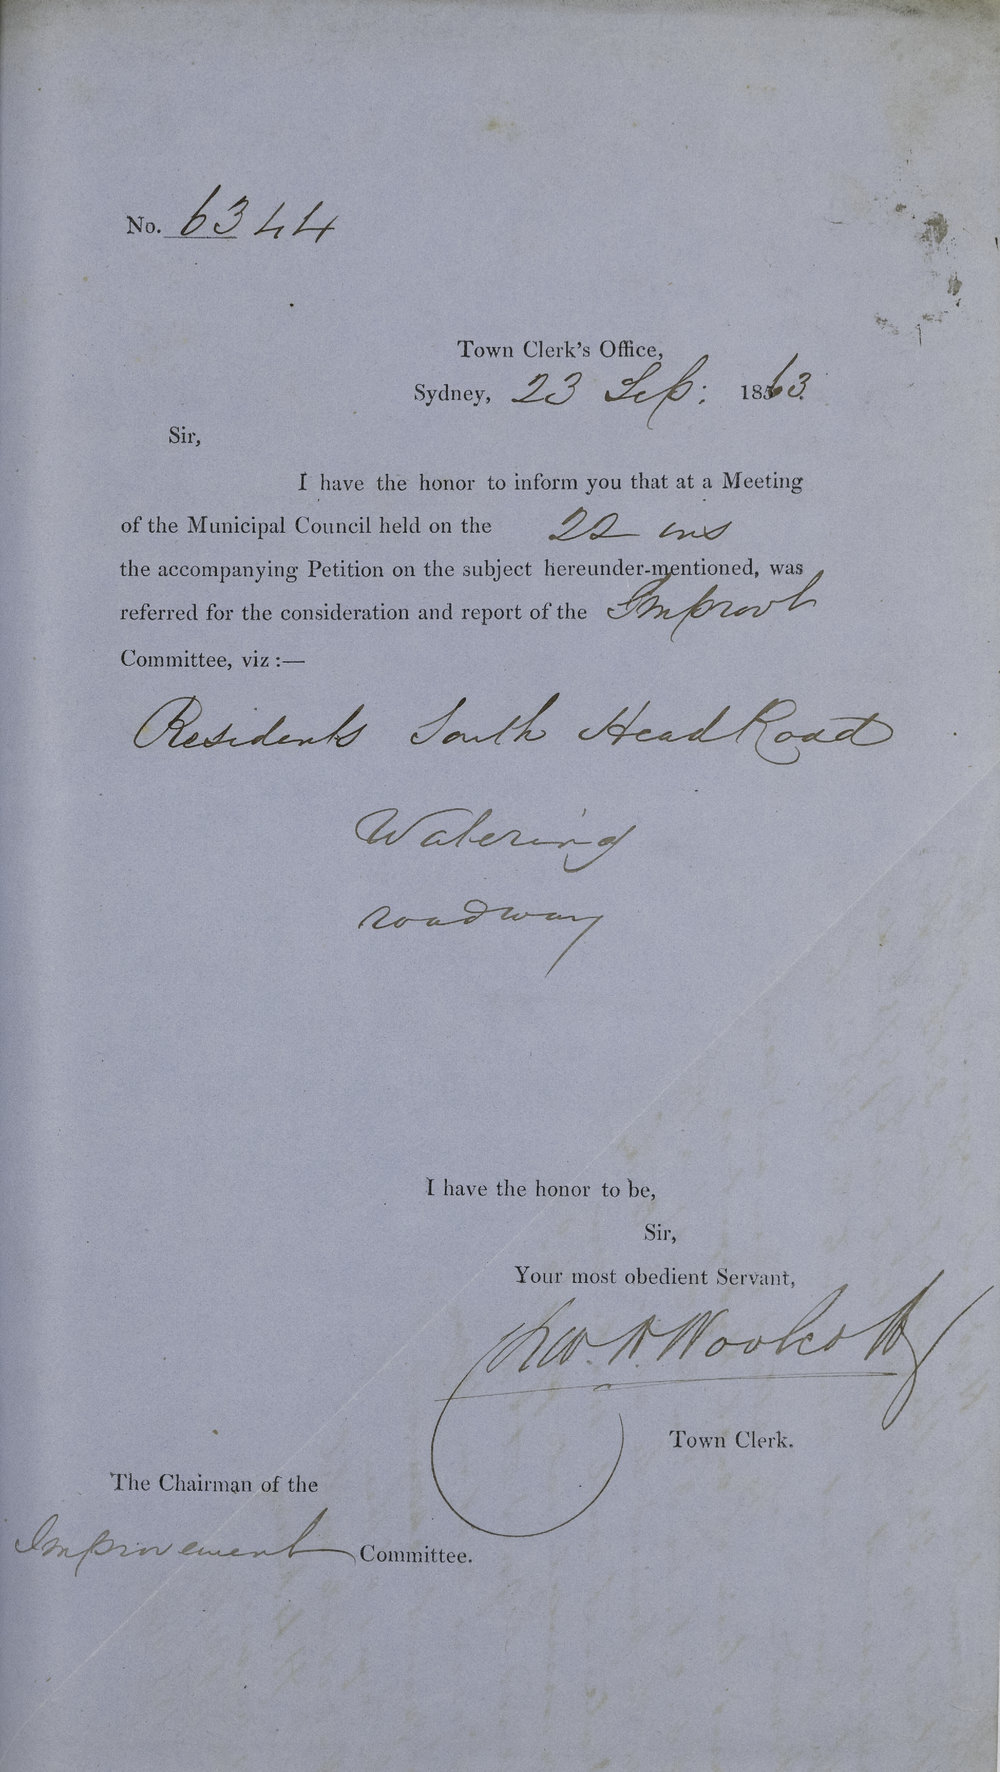 No. 6344
Town Clerk's Office,
Sydney, 23 Sep: 1863.
Sir,
I have the honor to inform you that at a Meeting
of the Municipal Council held on the 22 ins
the accompanying Petition on the subject hereunder-mentioned, was
referred for the consideration and report of the Improvt
Committee, viz :—
Residents South Head Road
Watering
roadway
I have the honor to be,
Sir,
Your most obedient Servant,
Woolcott
Town Clerk.
The Chairman of the
Improvement Committee.